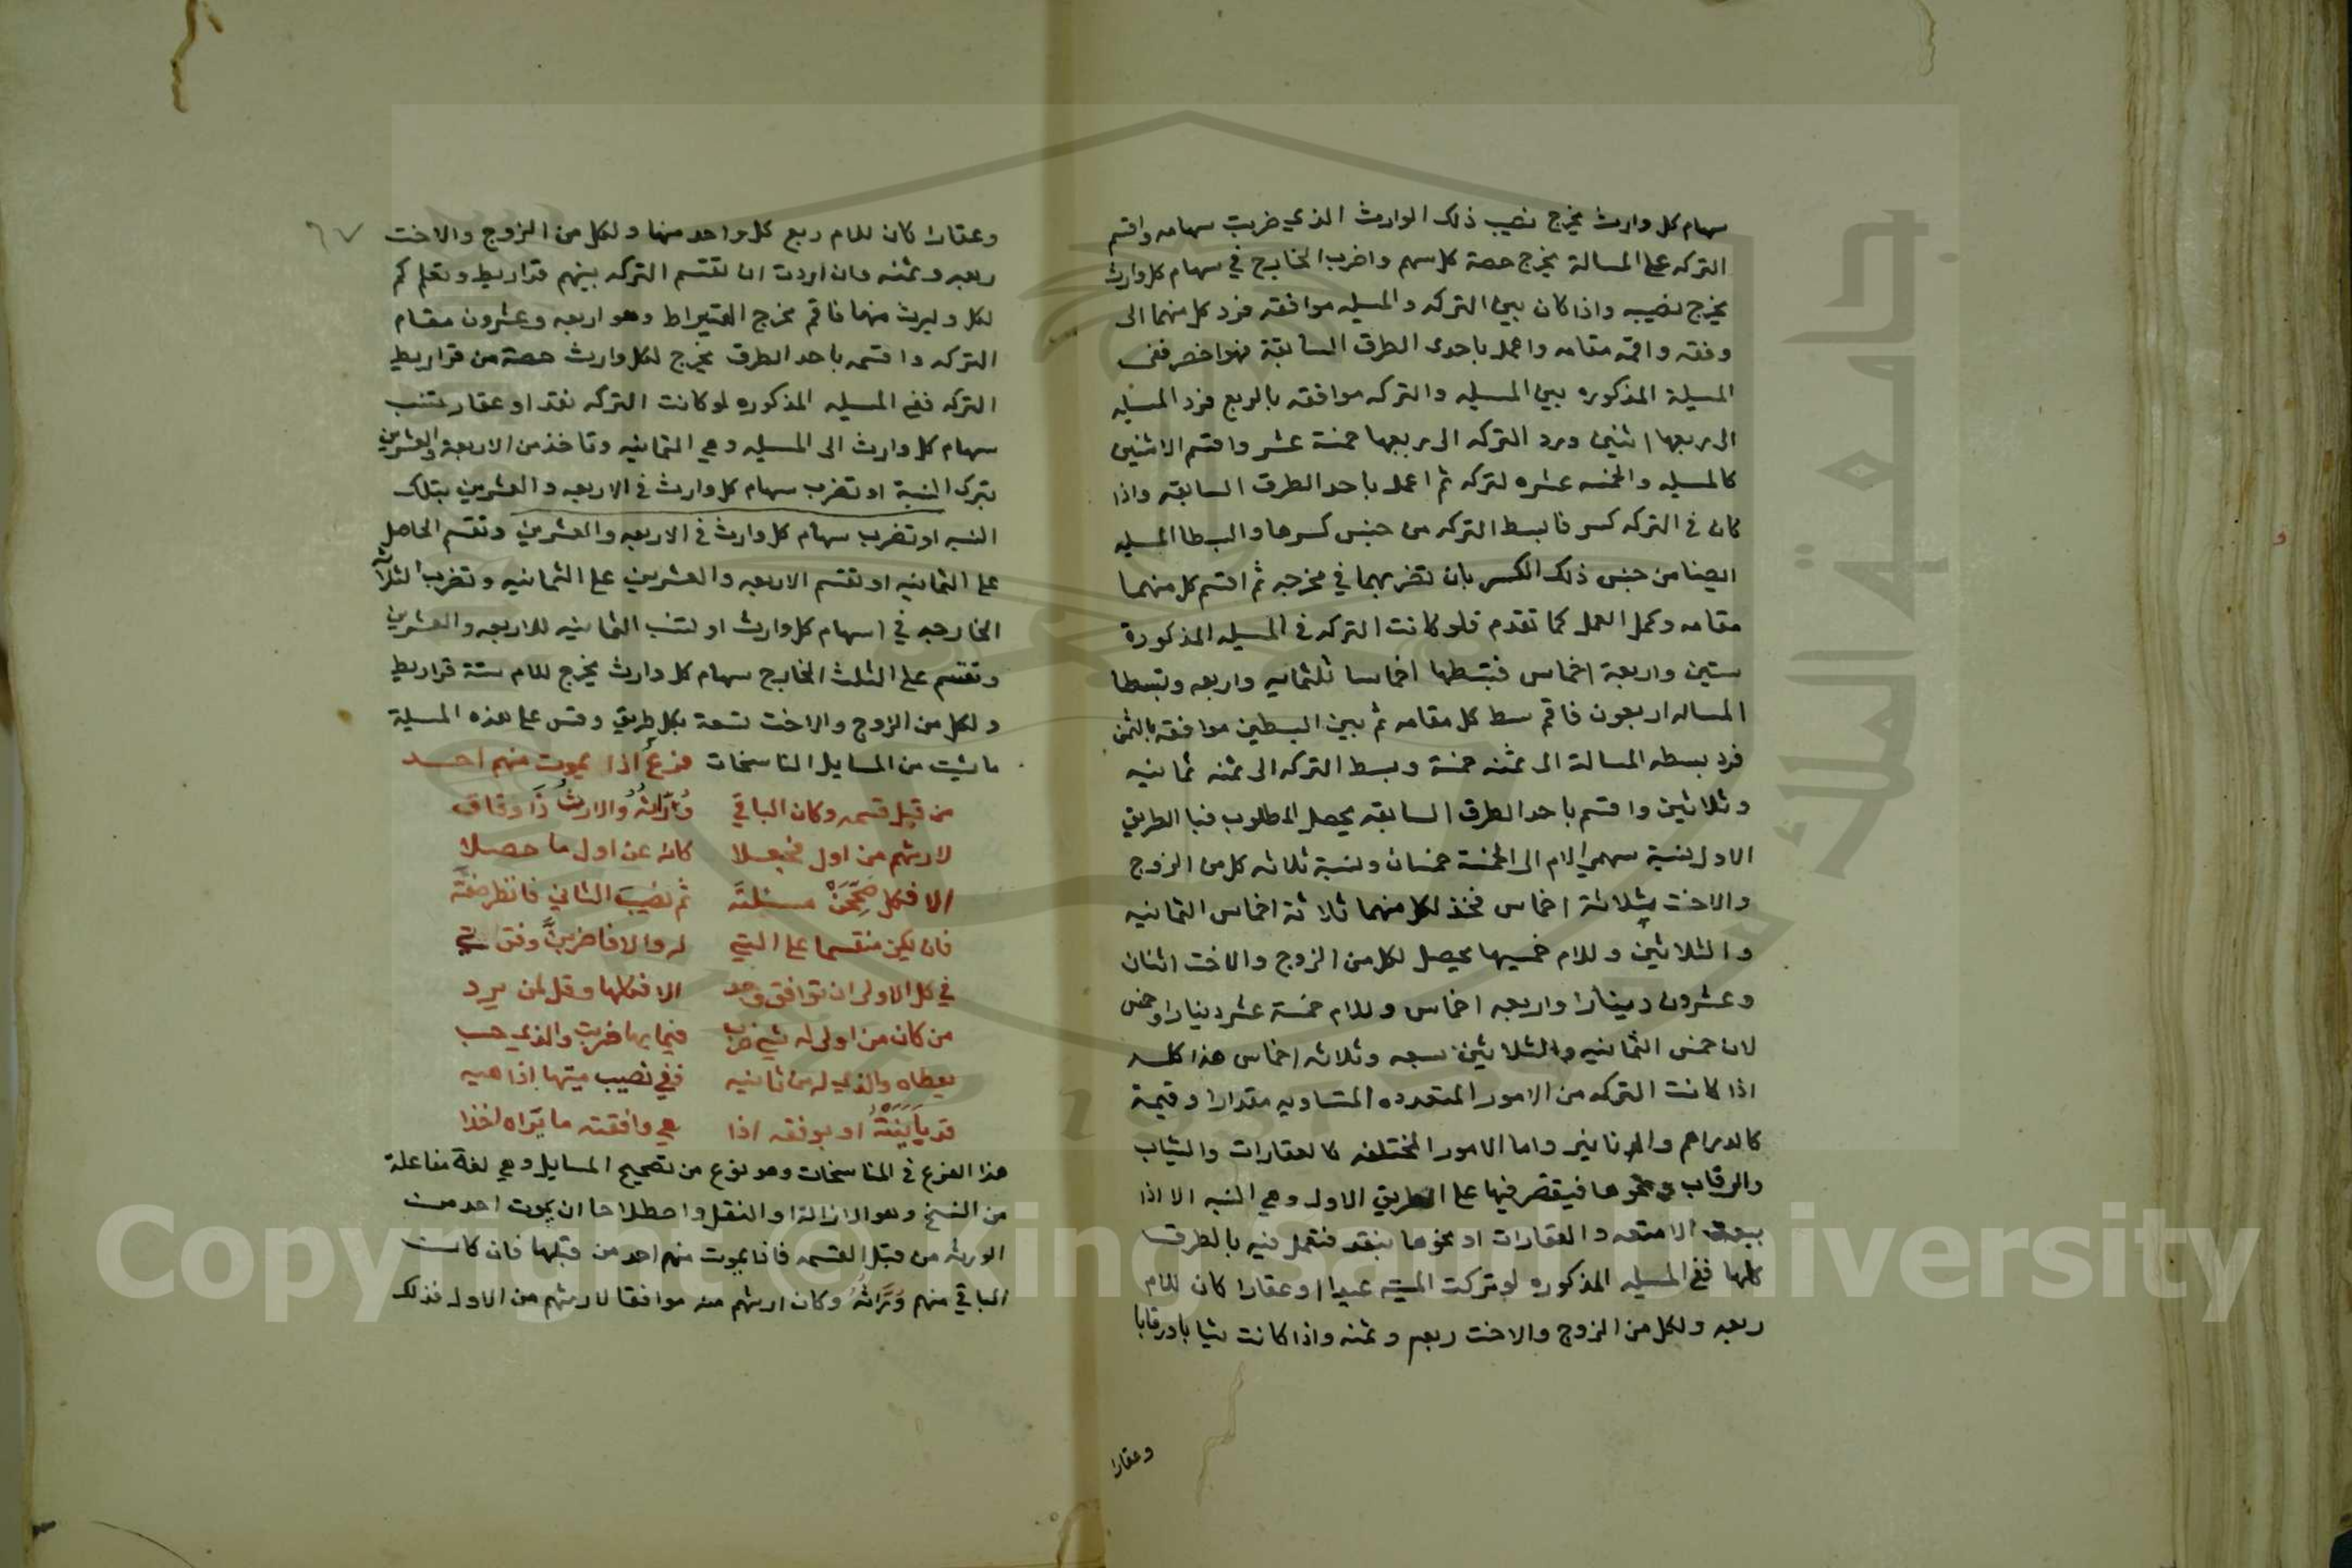 سهام كل وارث يخرج نصيب ذلك الوارث الذي ضربت سهامه واقسم
التركه على المسالة يخرج حصة كل سهم واضرب الخارج في سهام كل وارث
يخرج نصيبه واذا كان بين التركه والمسيله موافقه فرد كل منهما الى
وفقه واقمه مقامه واعمل باحدى الطرق السابقة فهو اخصر ففى
المسيلة المذكوره بين المسيله والتركه موافقه بالربع فرد المسيله
الى ربعها اثنين ورد التركه الى ربعها خمسة عشر واقسم الاثنين
كالمسيله والخمسه عشره لتركه ثم اعمل باحد الطرق السابقه واذا
كان في التركه كسر فابسط التركه من جنس كسرها وابسطا المسيله
ايضا من جنس ذلك الكسر بان تضربهما في مخرجه ثم اقسم كل منهما
مقامه وكمل العمل كما تقدم فلو كانت التركه في المسيله المذكورة
ستين واربعة اخماس فبتسطها اخماسا ثلثمائيه واربعه وتبسطا
المساله اربعون فاقم بسط كل مقامه ثم بين البسطين موافقه بالثمن
فرد بسطه المسالة الى ثمنه خمسة وبسط التركه الى ثمنه ثمانيه
وثلاثين واقسم باحد الطرق السابقه يحصل المطلوب فبا الطريق
الاول بنسبة سهمي الام الى الخمسة خمسان ونسبة ثلاثه كل من الزوج
والاخت بثلاثة اخماس فخذ لكل منهما ثلاثة اخماس الثمانيه
والثلاثين وللام خمسيها يحصل لكل من الزوج والاخت اثنان
وعشرون دينارا واربعه اخماس وللام خمسة عشر دينارا وخمس
لان خمس الثمانيه والثلاثين سبعه وثلاثه اخماس هذا كله
اذا كانت التركه من الامور المتعدده المتساويه مقدارا وقيمة
كالدراهم والدنانير واما الامور المختلفه كالعقارات والثياب
والرقاب ونحوها فيقتصر فيها على الطريق الاول وهي النسبه الا اذا
بيعت الامتعه والعقارات او نحوها بنقد فتعمل فيه بالطرق
كلها ففي المسيله المذكوره لو تركت الميته عبيدا او عقارا كان للام
ربعه ولكل من الزوج والاخت ربعه وثمنه واذا كانت ثيابا ورقابا
وعقارا
٦٧
وعقارا كان للام ربع كل واحد منها ولكل من الزوج والاخت
ربعه وثمنه وان اردت ان تقسم التركه بينهم قراريط وتعلم كم
لكل وليرث منها فاقم مخرج القيراط وهو اربعه وعشرون مقام
التركه واقسمه باحد الطرق يخرج لكل وارث حصة من قراريط
التركه ففي المسيله المذكوره لو كانت التركه نقدا او عقار تنسب
سهام كل وارث الى المسيله وهي الثمانيه وتاخذ من الاربعه والعشرين
بترك النسبة او تضرب سهام كل وارث في الاربعه والعشرين بتلك
النسبه او تضرب سهام كل وارث في الاربعه والعشرين وتقسم الحاصل
على الثمانيه او تقسم الاربعه والعشرين على الثمانيه وتضرب الثلاثة
الخارجه في اسهام كل وارث او تنسب الثمانيه للاربعه والعشرين
وتقسم على الثلث الخارج سهام كل وارث يخرج للام ستة قراريط
ولكل من الزوج والاخت تسعة بكل طريق وقس على هذه المسيلة
ما شيت من المسايل المناسخات فرع اذا يموت منهم احد
من قبل قسمه وكان الباقي وُرَّاثُهُ والارثُ ذَا وفاق
لارثهم من اول فجعلا كانه عن اول ما حصلا
الا فكل صَحِّحَنْ مسئلة ثم نصيبَ الثاني فانظر ضفته
فان يكن منقسما على التي له والا فاضربن وفق تي
في كل الاولى ان توافق وجد الا فكلها وقل لمن يرد
من كان من اولى له شي ضرب فيما بها ضربت والذي حسب
يعطاه والذي له من ثانيه ففي نصيب ميتها اذا هيه
قد بَايَنَتْهُ او بوفقه اذا هي وافقته ما تراه اخذا
هذا الفرع في المناسخات وهو نوع من تصحيح المسايل وهي لغة مفاعلة
من النسخ وهو الازالة او النقل واصطلاحا ان يموت احد من
الورثه من قبل القسمه فاذا يموت منهم احد من قبلها فان كانت
الباقي منهم وُرَّاثُهُ وكان ارثهم منه موافقا لارثهم من الاول فذلك
Copyright © King Saud University
جامعة الملك